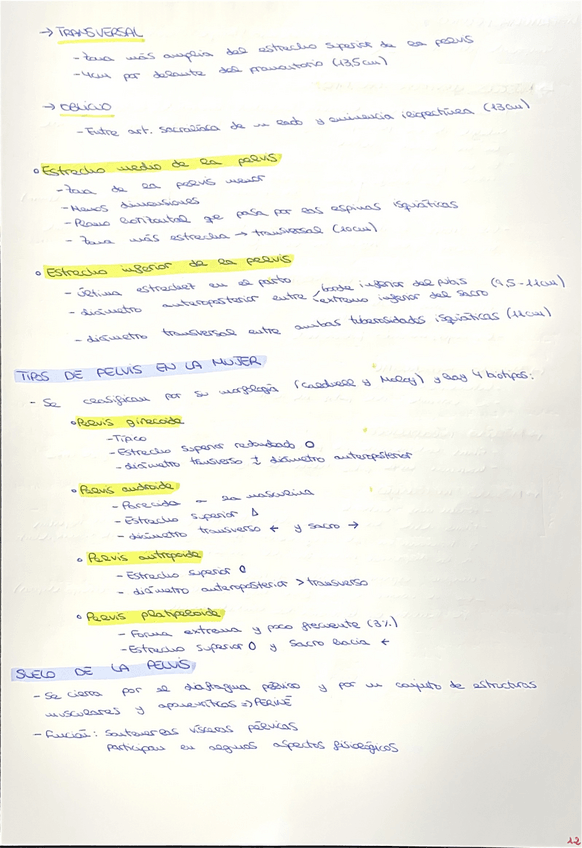 → TRANSVERSAL
- Zona más amplia del estrecho superior de la pelvis
- 4cm por delante del promontorio (13,5cm)
→ OBLICUO
- Entre art. sacroilíaca de un lado y eminencia ileopectínea (13cm)
• Estrecho medio de la pelvis
- Zona de la pelvis menor
- Menos dimensiones
- Plano horizontal que pasa por las espinas isquiáticas
- Zona más estrecha → transversal (10cm)
• Estrecho inferior de la pelvis
- última estrechez en el parto
- diámetro anteroposterior entre borde inferior del pubis (9,5-11cm)
extremo inferior del sacro
- diámetro transversal entre ambas tuberosidades isquiáticas (11cm)
TIPOS DE PELVIS EN LA MUJER
- Se clasifican por su morfología (Caldwell y Moloy) y hay 4 biotipos:
• Pelvis ginecoide
- Típico
- Estrecho superior redondeado O
- diámetro transverso ± diámetro anteroposterior
• Pelvis androide
- Parecida a la masculina
- Estrecho superior Δ
- diámetro transverso ← y sacro →
• Pelvis antropoide
- Estrecho superior 0
- diámetro anteroposterior > transverso
• Pelvis platipeloide
- Forma extrema y poco frecuente (3%)
- Estrecho superior 0 y sacro hacia ←
SUELO DE LA PELVIS
- Se cierra por el diafragma pélvico y por un conjunto de estructuras
musculares y aponeuróticas => PERINÉ
- Función: Sostener las vísceras pélvicas
participan en algunos aspectos fisiológicos
12